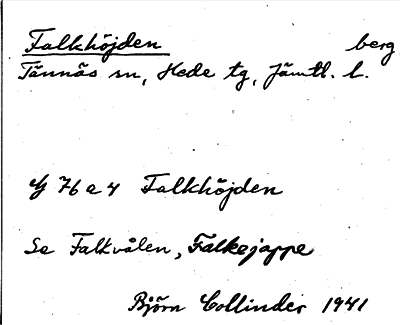 Falkhöjden berg
Tännäs sn, Hede tg, Jämtl. l.
G 76 a 4 Falkhöjden
Se Falkvålen, Falkejappe
Björn Collinder 1941